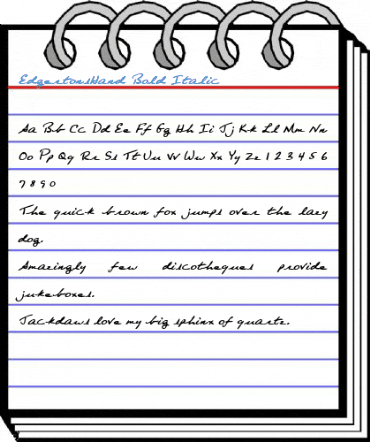 EdgertonsHand Bold Italic
Aa Bb Cc Dd Ee Ff Gg Hh Ii Jj Kk Ll Mm Nn
Oo Pp Qq Rr Ss Tt Uu Vv Ww Xx Yy Zz 1 2 3 4 5 6
7 8 9 0
The quick brown fox jumps over the lazy
dog.
Amazingly few discotheques provide
jukeboxes.
Jackdaws love my big sphinx of quartz.